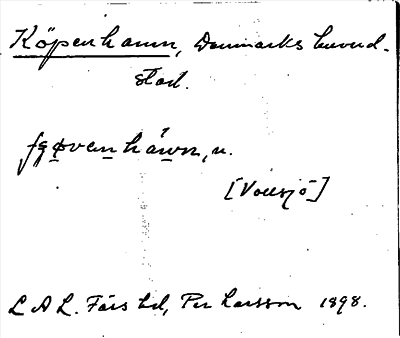 Köpenhamn, Danmarks huvud-
stad.
fgøvenháwn, n.
[Vollsjö]
L A L. Färs hd, Per Larsson 1898.